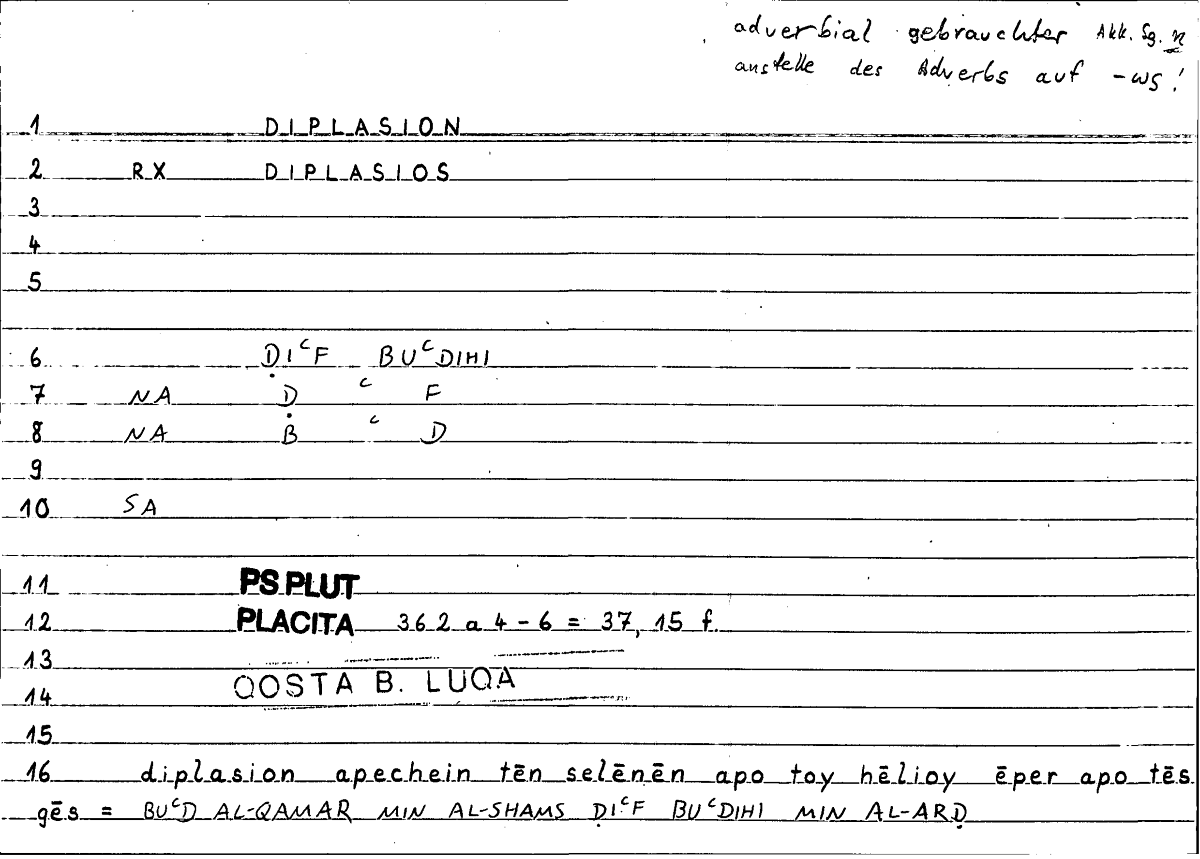 adverbial gebrauchter Akk. Sg. n
anstelle des Adverbs auf -ως!
1 DIPLASION
2 RX DIPLASIOS
3
4
5
6 ḌIᶜF BUᶜDIHI
7 NA Ḍ ᶜ F
8 NA B ᶜ D
9
10 SA
11 PS.PLUT
12 PLACITA 362 a 4 - 6 = 37, 15 f.
13
14 QOSTA B. LUQA
15
16 diplasion apechein tēn selēnēn apo toy hēlioy ēper apo tēs
gēs = BUᶜD AL-QAMAR MIN AL-SHAMS ḌIᶜF BUᶜDIHI MIN AL-ARḌ